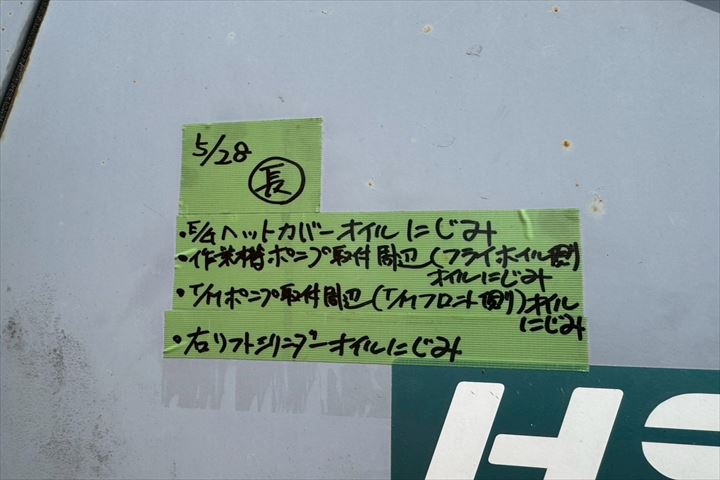 5/28
長
・E/Gヘットカバーオイルにじみ
・作業機ポンプ取付周辺(フライホイル側)
オイルにじみ
・T/Mポンプ取付周辺(T/Mフロント側)オイル
にじみ
・右リフトシリンダーオイルにじみ
HS